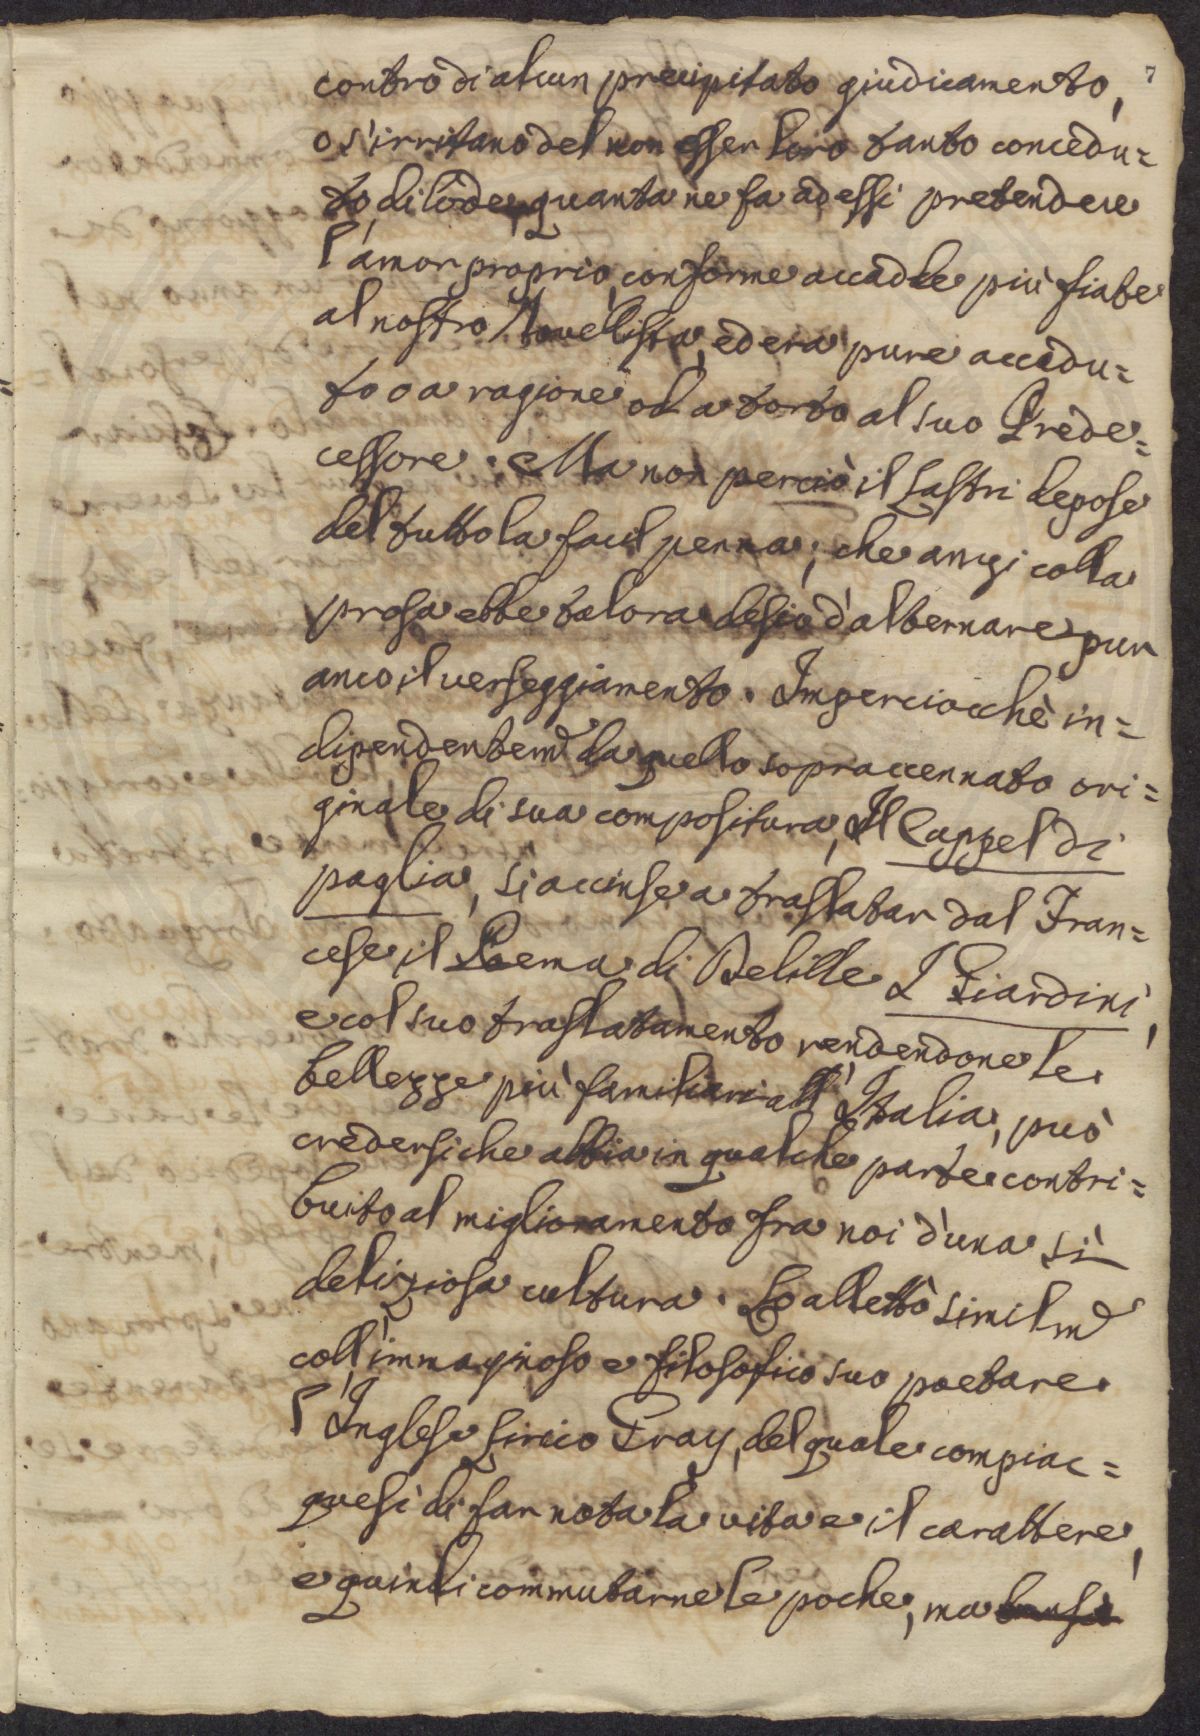 7
contro di alcun precipitato giudicamento,
o s'irritano del non esser loro tanto concedu=
to di lode, quanta ne fa ad essi pretendere
l'amor proprio, conforme accadde più fiate
al nostro Novellista, ed era pure accadu=
to o a ragione od a torto al suo Prede=
cessore. Ma non perciò il Lastri depose
del tutto la facil penna; che anzi colla
prosa ebbe talora desio d'alternare pur
anco il verseggiamento. Imperciocchè in=
dipendentem.e da quello sopraccennato ori=
ginale di sua compositura, Il Cappel di
paglia, si accinse a traslatar dal Fran=
cese il Poema di Delille I Giardini,
e col suo traslatamento rendendone le
bellezze più familiari all'Italia, può
credersi che abbia in qualche parte contri=
buito al miglioramento fra noi d'una sì
deliziosa cultura. Lo allettò similm.e
coll'immaginoso e filosofico suo poetare
l'Inglese Lirico Gray, del quale compiac=
quesi di far nota la vita e il carattere,
e quindi commutarne le poche, ma